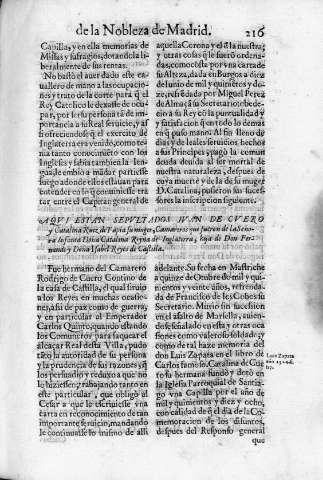 de la Nobleza de Madrid. 216
Capilla, y en ella memorias de
Missas y sufragios, dotandola li-
beralmente de sus rentas.
No bastò el auer dado este ca-
uallero de mano a las ocupacio-
nes y trato de la corte para q̃ el
Rey Catolico le dexasse de ocu-
par, por ser su persona tã de im-
portancia a su Real seruicio, y as-
si ofreciendose q̃ el exercito de
Inglaterra era venido, como te-
nia tanto conocimiento con los
Ingleses y sabia tambien la len-
gua,
entender con el Capitan general de
aquella Corona y el
y otras cosas q̃ le fuerõ ordena-
das, como consta por vna carta de
su Alteza, dada en Burgos a diez
de Iunio de mil y quinientos y do-
ze, refrendada por Miguel Perez
de Almaçã su Secretario
dio a su Rey cõ la puntualidad y
satisfacion que en todo lo demas
en q̃ puso mano. Al fin lleno de
dias y de leales seruicios, hechos
a sus Principes, pagò la comun
deuda deuida al ser mortal de
nuestra naturaleza, y despues de
cuya muerte y de la de su muger
D. Catalina, pusieron sus suces-
sores la inscripcion siguiente.
AQVI ESTAN SEPVLTADOS IVAN DE CVERO
y Catalina Ruiz de Tapia su muger, Camareros que fueron de la Seño-
ra Infanta Doña Catalina Reyna de Inglaterra, hija de Don Fer-
nando y Doña Isabel Reyes de Castilla.
Fue hermano del Camarero
Rodrigo de Cuero Contino de
la casa de Castilla, el qual siruio
a los Reyes en muchas ocasio-
nes, assi de paz como de guerra,
y en particular al Emperador
Carlos Quinto, quando estando
los Comuneros para saquear el
alcaçar Real desta Villa, pudo
tãto la autoridad de su persona
y la prudencia de sus razones, q̃
los persuadio y reduxo a que no
lo hiziessen, trabajando tanto en
este particular, que obligò al
Cesar a que le escriuiesse vna
carta en reconocimiento de tan
importante seruicio, mandando
le continuasse lo mismo de alli
adelante. Su fecha en Mastriche
a quinze de Otubre de mil y qui-
nientos y veinte años, refrenda-
da de Francisco de los Cobos su
Secretario. Murio sin sucession
en el assalto de Marsella, auien-
dose señalado en esta y otras oca-
siones como valeroso soldado, y
como de tal haze memoria del
don Luis Zapata en el libro de
Carlos famoso. Catalina de Cue-
ro su hermana fundò y dotò en
la Iglesia Parroquial de Santia-
go vna Capilla por el año de
mil y quinientos y diez y ocho,
con calidad de q̃ el dia de la Co-
memoracion de los difuntos,
despues del Responso general
que
Luis Zapata